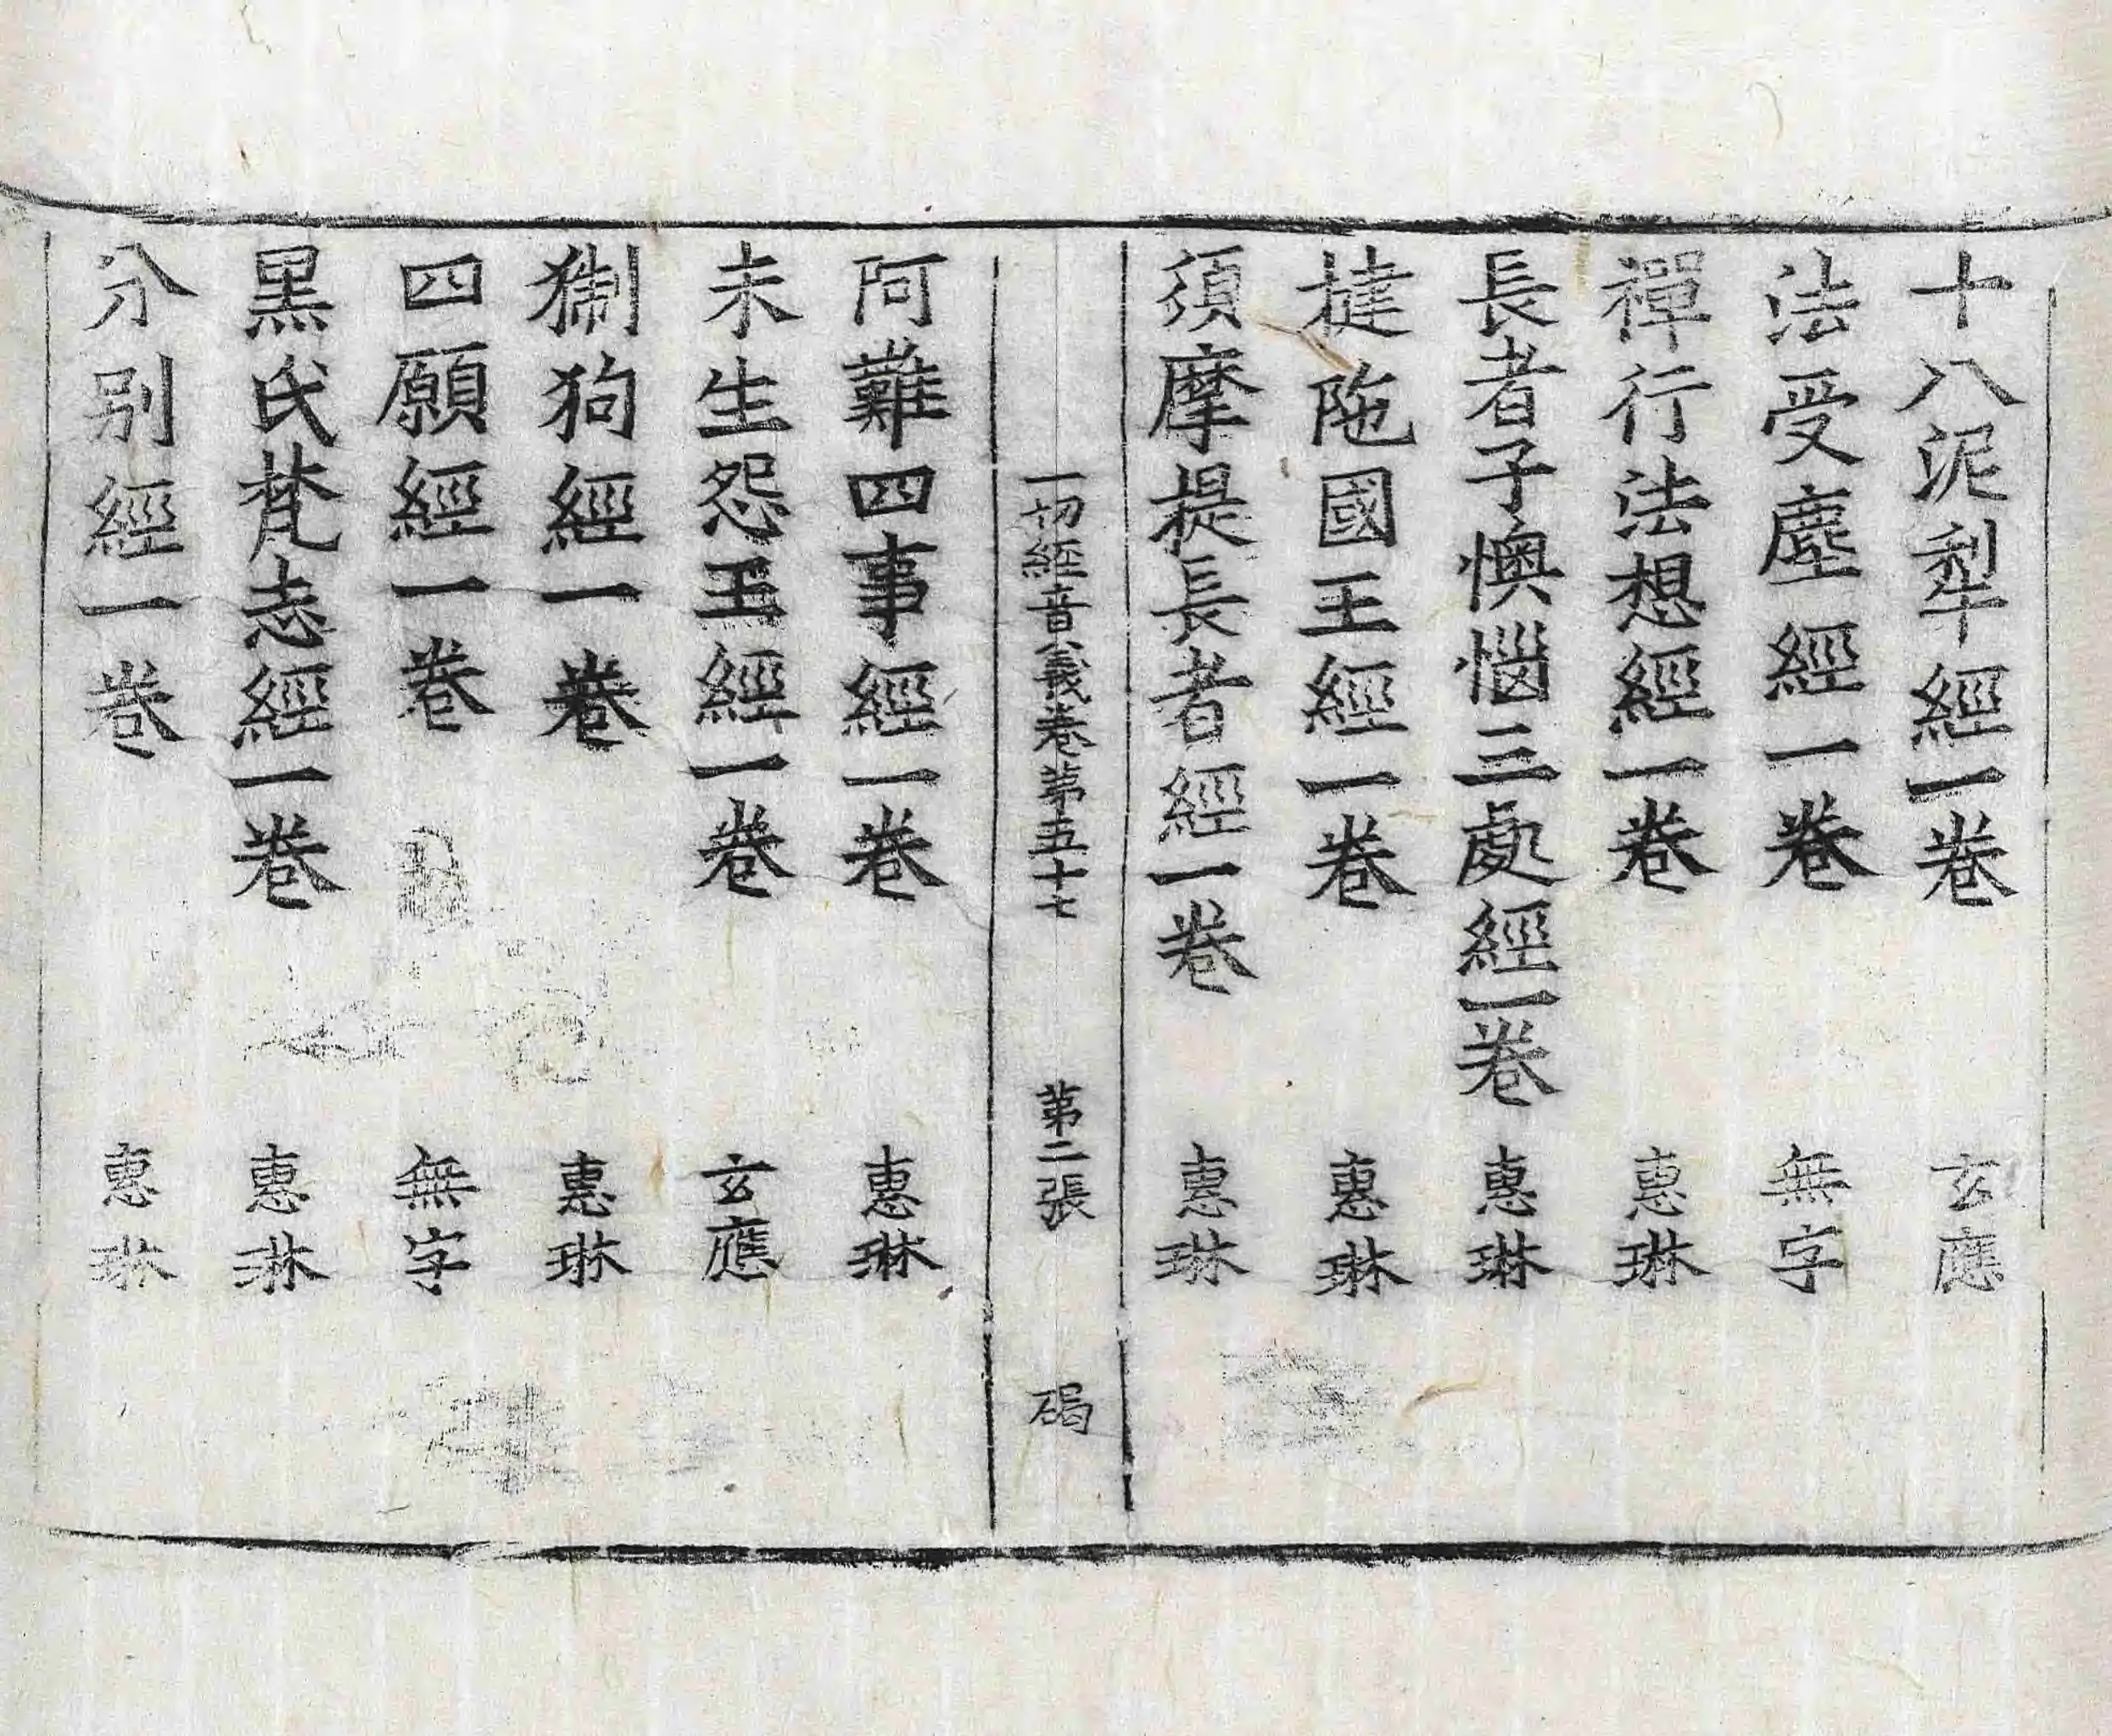 十八泥犁經一卷 玄應
法受塵經一卷 無字
禪行法想經一卷 惠琳
長者子懊惱三處經一卷 惠琳
揵陁國王經一卷 惠琳
須摩提長者經一卷 惠琳
一切經音義卷第五十七 第二張 碣
阿難四事經一卷 惠琳
未生怨王經一卷 玄應
猘狗經一卷 惠琳
四願經一卷 無字
黑氏梵志經一卷 惠琳
分別經一卷 惠琳